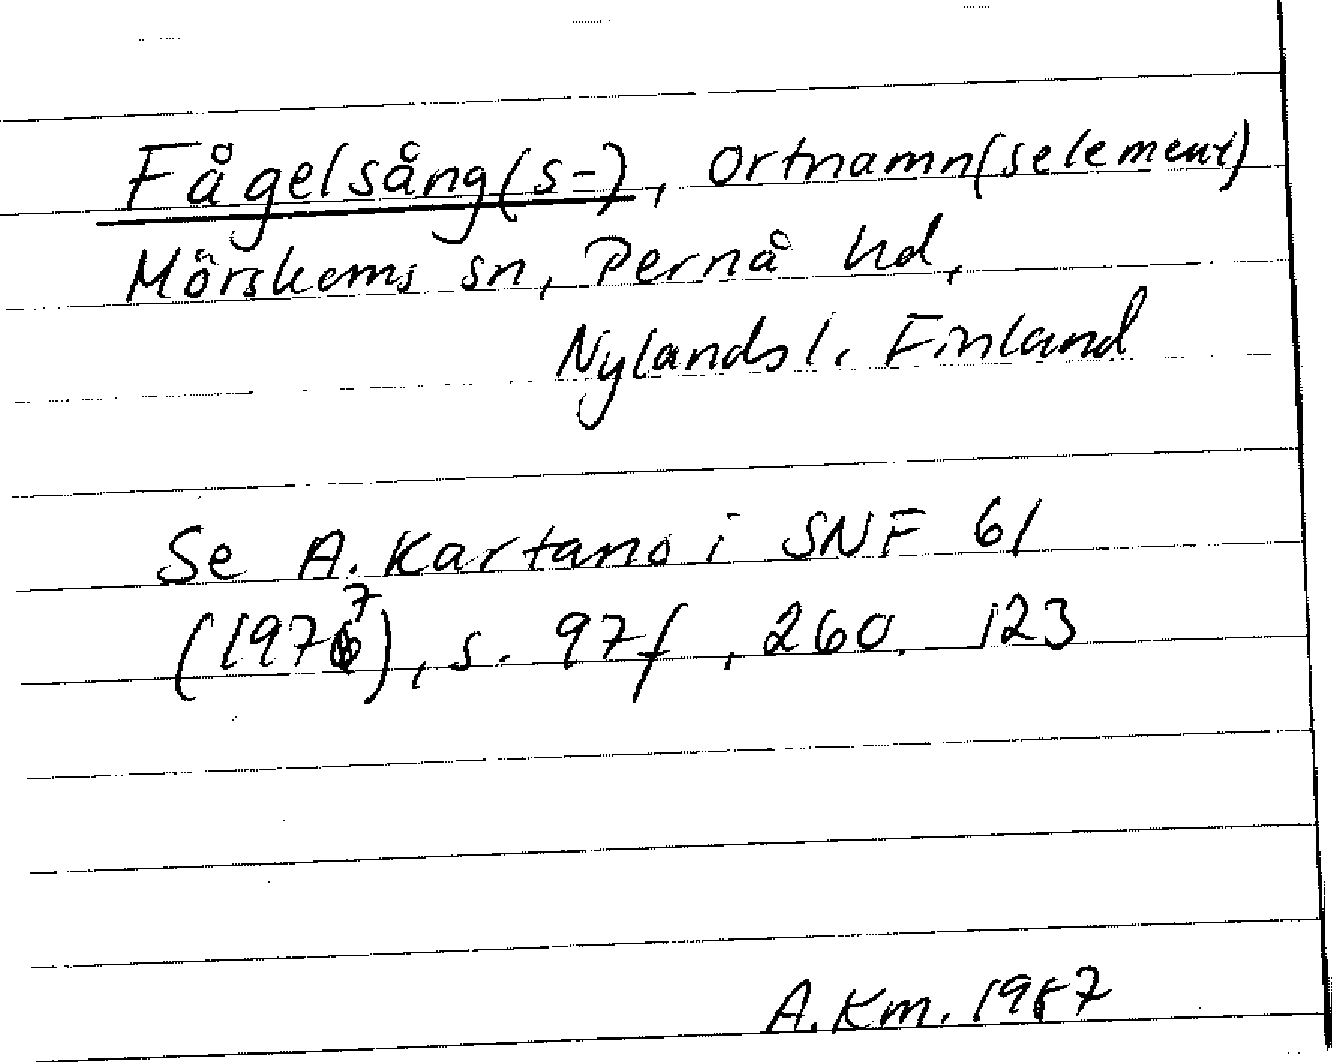 Fågelsång(s-), Ortnamn(selement)
Mörskoms sn, Pernå hd,
Nylands l. Finland
Se A. Kartano i SNF 61
(1977), s. 97f, 260, 123
A. Km. 1987